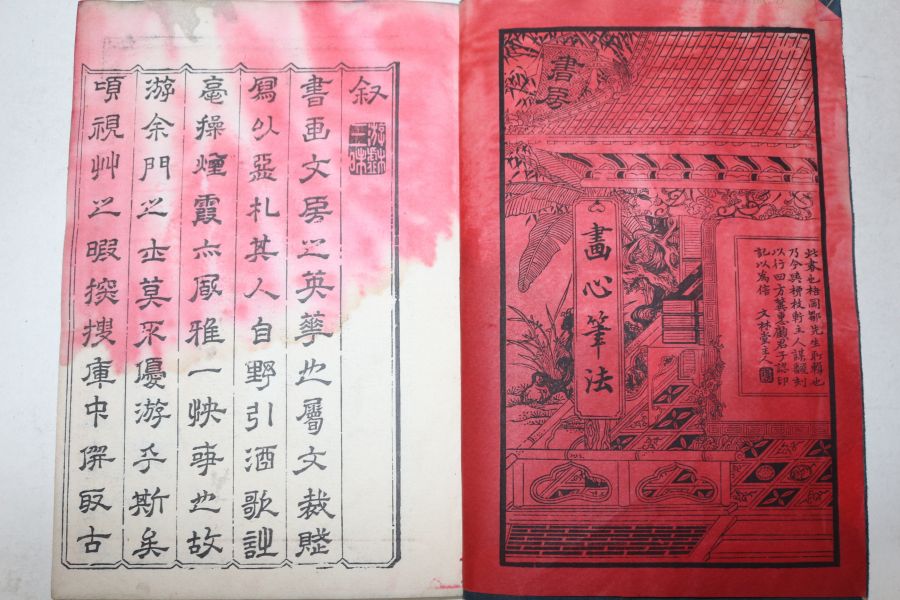 書房
畫心筆法
此卷也梧岡鄒先生所輯也
乃今與檜枝軒主人謀翻刻
以行四方冀惠顧君子認印
記以為信 文林堂主人
叙
游戲三昧
書画文房之英華也屬文裁牋
寫以亞札其人自野引酒歌詿
毫操煙霞亦厥雅一快事也故
游余門之士莫不優游乎斯矣
頃視艸之暇探搜庫中僎取古